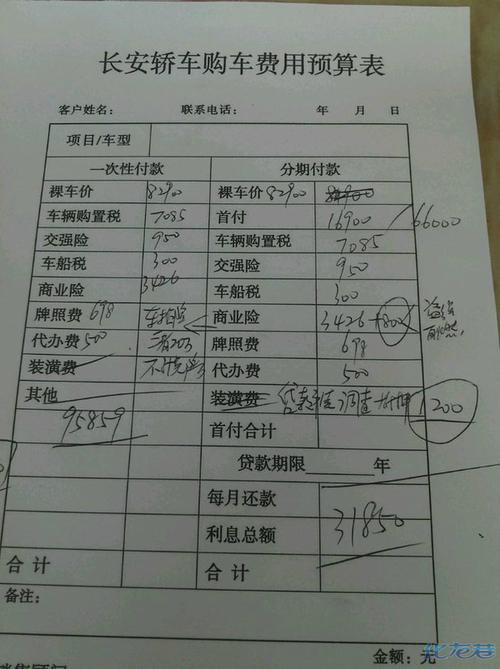 长安轿车购车费用预算表
客户姓名: 联系电话: 年 月 日
项目/车型
一次性付款 分期付款
裸车价 82900 裸车价 82900 84900
车辆购置税 7085 首付 16900 / 66000
交强险 950 车辆购置税 7085
车船税 300 交强险 950
商业险 3426 车船税 300
牌照费 698 车损 商业险 3426 +80
代办费 500 三者20万 牌照费 698
装潢费 不计免 代办费 500
其他 装潢费 贷款 调查 1200
95859 首付合计
贷款期限 年
每月还款
利息总额 31850
合计 合计
备注:
金额: 元
化龙巷